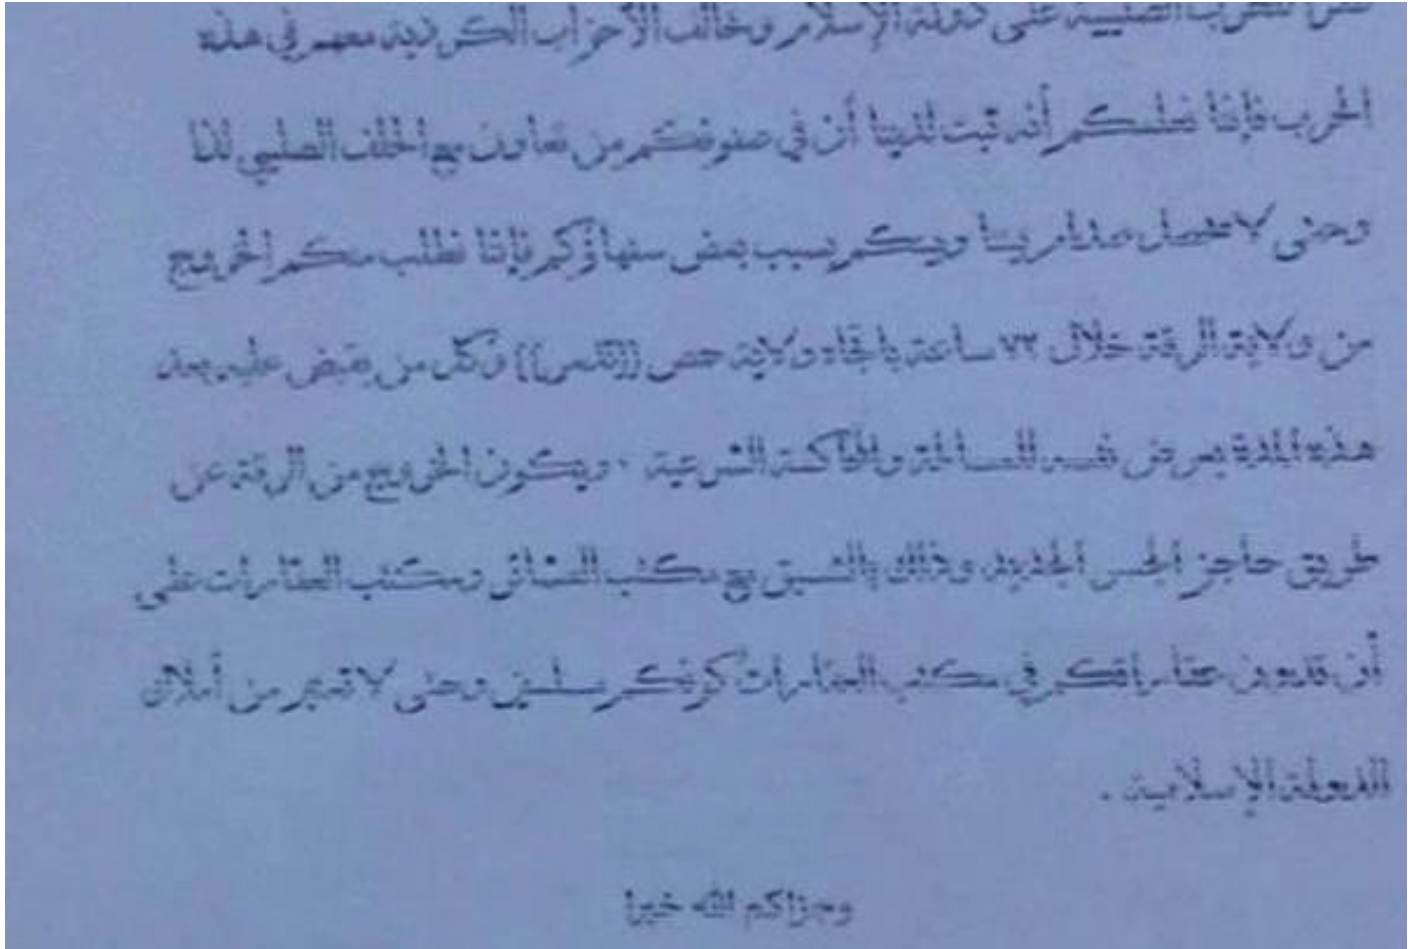 الحرب الصليبية على دولة الإسلام وتحالف الأحزاب الكردية معهم في هذه
الحرب فإننا نعلمكم أنه ثبت لدينا أن في صفوفكم من تعاون مع الحلف الصليبي لذا
وحتى لا يحصل صدام بيننا وبينكم بسبب بعض سفهاؤكم فإننا نطلب منكم الخروج
من ولاية الرقة خلال ٧٢ ساعة باتجاه ولاية حمص ((تدمر)) وكل من يقبض عليه بعد
هذه المدة يعرض نفسه للمسائلة والمحاكمة الشرعية . ويكون الخروج من الرقة عن
طريق حاجز الجسر الجديد وذلك بالتنسيق مع مكتب العشائر ومكتب العقارات على
أن تدون عقاراتكم في مكتب العقارات كونكم مسلمين وحتى لا تعتبر من أملاك
الدولة الإسلامية .
وجزاكم الله خيرا